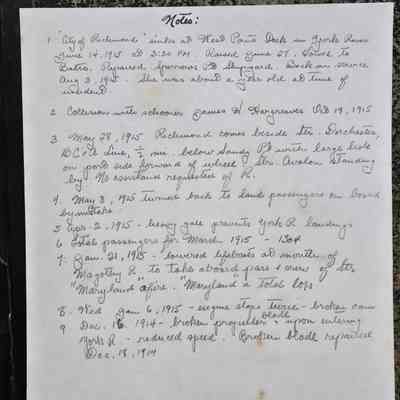 Notes:
1. "City of Richmond" sinks at West Point Dock in York River
June 14, 1915 at 3:20 P.M. Raised June 27. Towed to
Balto. Repaired Spedden's Shipyard. Back in service
Aug 3, 1915. She was about a year old at time of
incident.
2 Collision with schooner James H. Hargreaves Oct 19, 1915
3 May 28, 1915 Richmond comes beside Str. Dorchester,
BC&A Line, ½ mi. below Sandy Pt with large hole
on port side forward of wheel. Str. Avalon standing
by. No assistance requested of R.
4. May 3, 1915 turned back to land passengers on board
by mistake
5 Apr. 2, 1915 - heavy gale prevents York R landings
6 Total passengers for March 1915 - 1304
7. Jan. 21, 1915 - lowered lifeboats at mouth of
Magothy R. to take aboard pass & crew of Str
"Maryland" afire. "Maryland" a total loss
8. Wed Jan 6, 1915 - engine stops twice - broken cam
9. Dec. 16, 1914 - broken propeller blade upon entering
York R - reduced speed. Broken blade repaired
Dec. 18, 1914